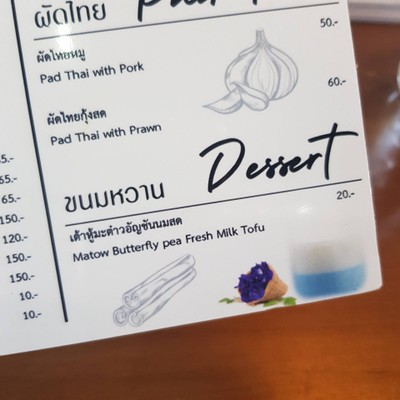 ผัดไทย Pad T
50.-
ผัดไทยหมู
Pad Thai with Pork
60.-
ผัดไทยกุ้งสด
Pad Thai with Prawn
ขนมหวาน Dessert
20.-
เต้าหู้มะต่าวอัญชันนมสด
Matow Butterfly pea Fresh Milk Tofu
5.-
65.-
65.-
150.-
120.-
150.-
150.-
10.-
10.-